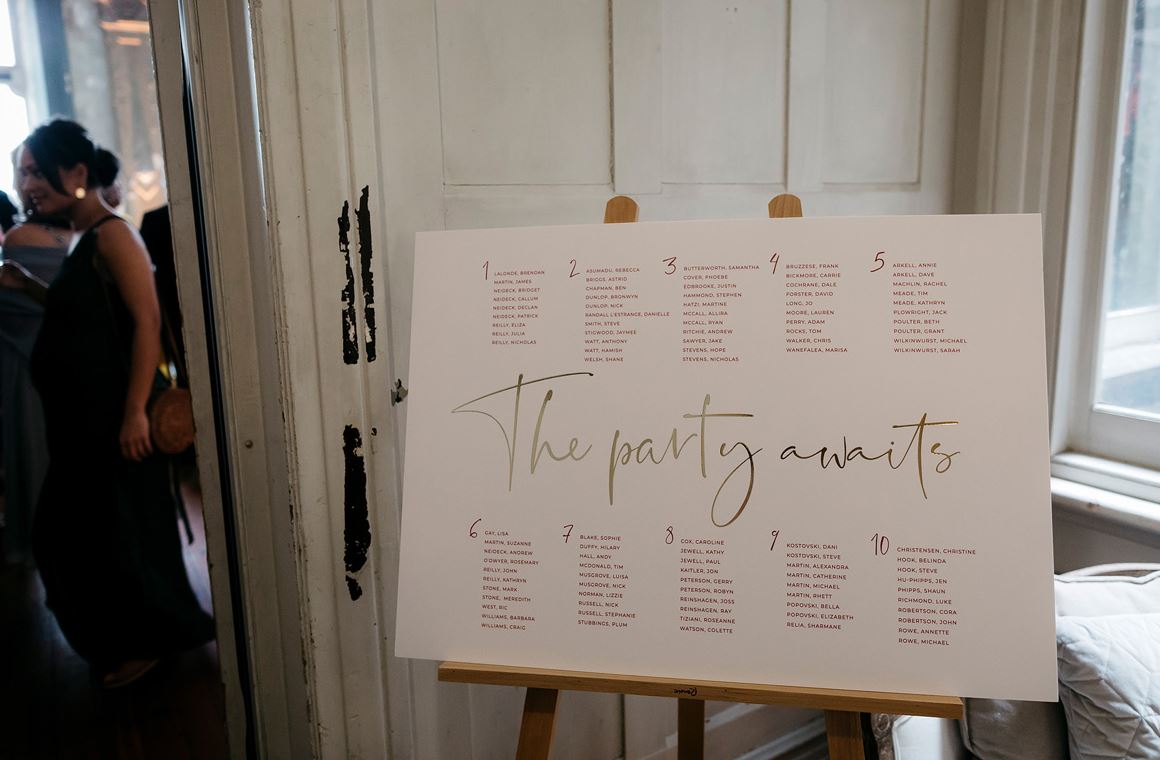 1
LALONDE, BRENDAN
MARTIN, JAMES
NEIDECK, BRIDGET
NEIDECK, CALLUM
NEIDECK, DECLAN
NEIDECK, PATRICK
REILLY, ELIZA
REILLY, JULIA
REILLY, NICHOLAS
2
ASUMADU, REBECCA
BRIGGS, ASTRID
CHAPMAN, BEN
DUNLOP, BRONWYN
DUNLOP, NICK
RANDALL L'ESTRANGE, DANIELLE
SMITH, STEVE
STIGWOOD, JAYMEE
WATT, ANTHONY
WATT, HAMISH
WELSH, SHANE
3
BUTTERWORTH, SAMANTHA
COVER, PHOEBE
EDBROOKE, JUSTIN
HAMMOND, STEPHEN
HATZI, MARTINE
MCCALL, ALLIRA
MCCALL, RYAN
RITCHIE, ANDREW
SAWYER, JAKE
STEVENS, HOPE
STEVENS, NICHOLAS
4
BRUZZESE, FRANK
BICKMORE, CARRIE
COCHRANE, DALE
FORSTER, DAVID
LONG, JO
MOORE, LAUREN
PERRY, ADAM
ROCKS, TOM
WALKER, CHRIS
WANEFALEA, MARISA
5
ARKELL, ANNIE
ARKELL, DAVE
MACHLIN, RACHEL
MEADE, TIM
MEADE, KATHRYN
PLOWRIGHT, JACK
POULTER, BETH
POULTER, GRANT
WILKINWURST, MICHAEL
WILKINWURST, SARAH
The party awaits
6
GAY, LISA
MARTIN, SUZANNE
NEIDECK, ANDREW
O'DWYER, ROSEMARY
REILLY, JOHN
REILLY, KATHRYN
STONE, MARK
STONE, MEREDITH
WEST, RIC
WILLIAMS, BARBARA
WILLIAMS, CRAIG
7
BLAKE, SOPHIE
DUFFY, HILARY
HALL, ANDY
MCDONALD, TIM
MUSGROVE, LUISA
MUSGROVE, NICK
NORMAN, LIZZIE
RUSSELL, NICK
RUSSELL, STEPHANIE
STUBBINGS, PLUM
8
COX, CAROLINE
JEWELL, KATHY
JEWELL, PAUL
KAITLER, JON
PETERSON, GERRY
PETERSON, ROBYN
REINSHAGEN, JOSS
REINSHAGEN, RAY
TIZIANI, ROSEANNE
WATSON, COLETTE
9
KOSTOVSKI, DANI
KOSTOVSKI, STEVE
MARTIN, ALEXANDRA
MARTIN, CATHERINE
MARTIN, MICHAEL
MARTIN, RHETT
POPOVSKI, BELLA
POPOVSKI, ELIZABETH
RELIA, SHARMANE
10
CHRISTENSEN, CHRISTINE
HOOK, BELINDA
HOOK, STEVE
HU-PHIPPS, JEN
PHIPPS, SHAUN
RICHMOND, LUKE
ROBERTSON, CORA
ROBERTSON, JOHN
ROWE, ANNETTE
ROWE, MICHAEL